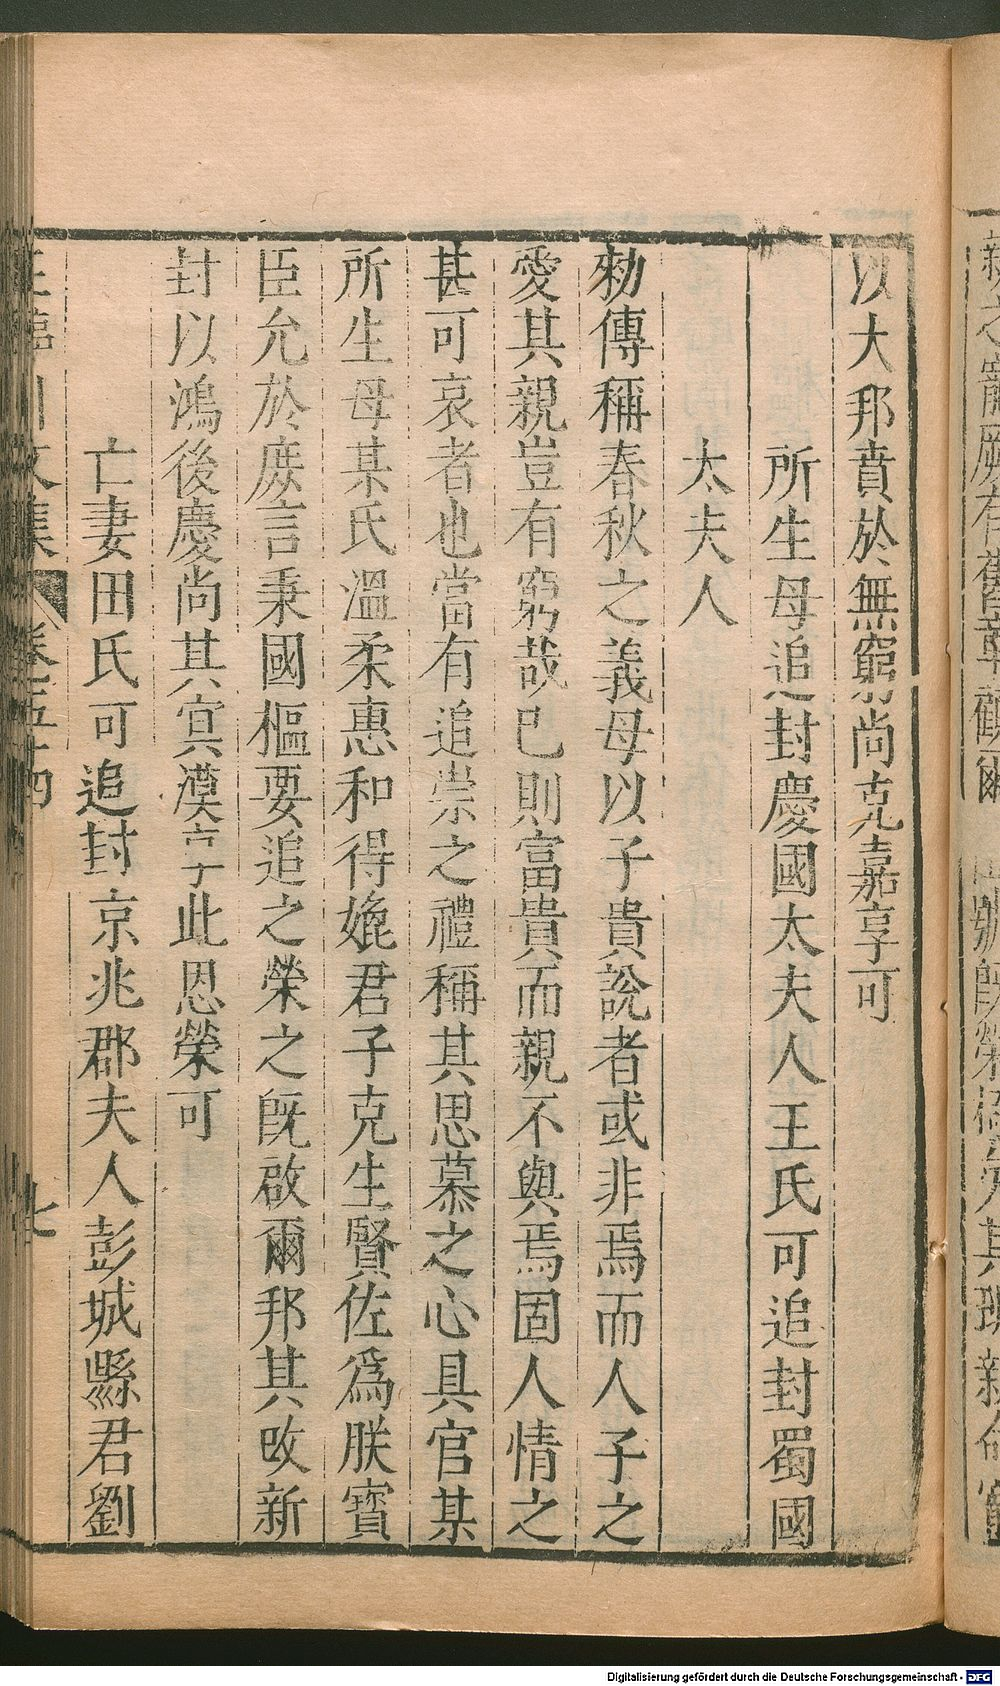 以大邦賁於無窮尚克嘉享可
所生母追封慶國太夫人王氏可追封蜀國
太夫人
勑傳稱春秋之義母以子貴說者或非焉而人子之
愛其親豈有窮哉已則富貴而親不與焉固人情之
甚可哀者也當有追崇之禮稱其思慕之心具官某
所生母某氏溫柔惠和得媲君子克生賢佐爲朕寶
臣允於庶言秉國樞要追之榮之旣啟爾邦其改新
封以鴻後慶尚其冥漠享此恩榮可
亡妻田氏可追封京兆郡夫人彭城縣君劉
王臨川文集 卷五十四 七
Digitalisierung gefördert durch die Deutsche Forschungsgemeinschaft - DFG